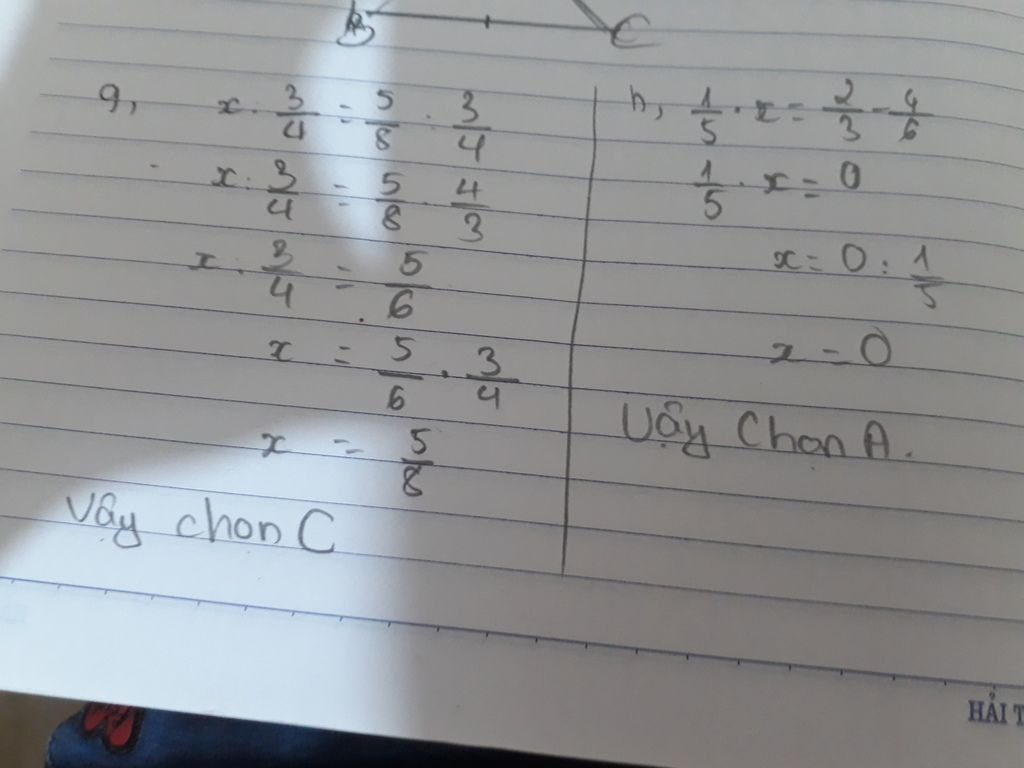 B C
g, x : 3/4 = 5/8 : 3/4
x : 3/4 = 5/8 . 4/3
x : 3/4 = 5/6
x = 5/6 . 3/4
x = 5/8
Vậy chon C
h, 1/5 . x = 2/3 - 4/6
1/5 . x = 0
x = 0 : 1/5
x = 0
Vậy Chọn A.
HẢI T